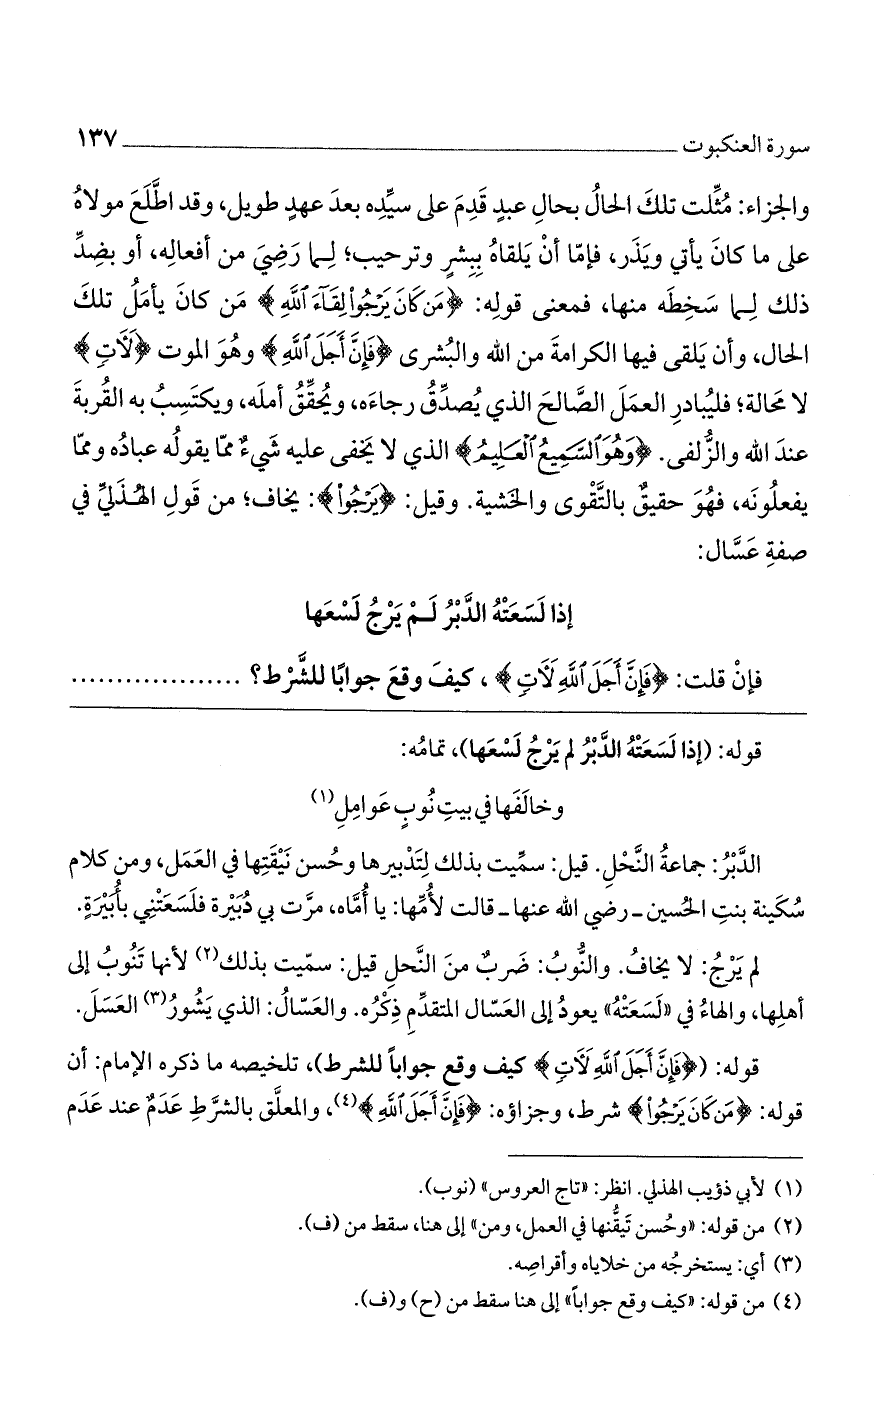 سورة العنكبوت ١٣٧
والجزاء: مُثِّلت تلكَ الحالُ بحالِ عبدٍ قَدِمَ على سيِّدِه بعدَ عهدٍ طويل، وقد اطَّلَعَ مولاهُ
على ما كانَ يأتي ويَذَر، فإمّا أنْ يَلقاهُ بِبِشرٍ وترحيب؛ لِـما رَضِيَ من أفعالِه، أو بضِدِّ
ذلك لِـما سَخِطَه منها، فمعنى قولِه: ﴿مَن كَانَ يَرْجُوا۟ لِقَآءَ ٱللَّهِ﴾ مَن كانَ يأمَلُ تلكَ
الحال، وأن يَلقى فيها الكرامةَ من الله والبُشرى ﴿فَإِنَّ أَجَلَ ٱللَّهِ﴾ وهُوَ الموت ﴿لَآتٍ﴾
لا مَحالة؛ فليُبادرِ العمَلَ الصَّالحَ الذي يُصدِّقُ رجاءَه، ويُحقِّقُ أملَه، ويكتَسِبُ به القُربةَ
عندَ الله والزُّلفى. ﴿وَهُوَ ٱلسَّمِيعُ ٱلْعَلِيمُ﴾ الذي لا يَخفى عليه شَيءٌ ممّا يقولُه عبادُه وممّا
يفعلُونَه، فهُوَ حقيقٌ بالتَّقْوى والخَشية. وقيل: ﴿يَرْجُوا۟﴾: يخاف؛ من قَولِ الهُذَليِّ في
صفةِ عَسَّال:
إذا لَسَعَتْهُ الدَّبْرُ لَـمْ يَرْجُ لَسْعَها
فإنْ قلت: ﴿فَإِنَّ أَجَلَ ٱللَّهِ لَآتٍ﴾، كيفَ وقعَ جوابًا للشَّرْط؟ ...................
قوله: (إذا لَسَعَتْهُ الدَّبْرُ لم يَرْجُ لَسْعَها)، تمامُه:
وخالَفَها في بيتِ نُوبٍ عَوامِلِ(١)
الدَّبْرُ: جماعةُ النَّحْلِ. قيل: سمِّيت بذلك لِتَدْبيرها وحُسن نَيْقَتِها في العَمَل، ومن كلام
سُكَينة بنتِ الحُسين ـ رضي الله عنها ـ قالت لأُمِّها: يا أُمَّاه، مرَّت بي دُبَيْرة فلَسَعَتْنِي بأُبَيْرَةٍ.
لم يَرْجُ: لا يخافُ. والنُّوبُ: ضَربٌ منَ النَّحلِ قيل: سمّيت بذلك(٢) لأنها تَنُوبُ إلى
أهلِها، والهاءُ في «لَسَعَتْهُ» يعودُ إلى العَسّال المتقدِّمِ ذِكْرُه. والعَسَّالُ: الذي يَشُورُ(٣) العَسَلَ.
قوله: (﴿فَإِنَّ أَجَلَ ٱللَّهِ لَآتٍ﴾ كيف وقع جواباً للشرط)، تلخيصه ما ذكره الإمام: أن
قوله: ﴿مَن كَانَ يَرْجُوا۟﴾ شرط، وجزاؤه: ﴿فَإِنَّ أَجَلَ ٱللَّهِ﴾(٤)، والمعلَّق بالشَّرطِ عَدَمٌ عند عَدَم
(١) لأبي ذؤيب الهذلي. انظر: «تاج العروس» (نوب).
(٢) من قوله: «وحُسن تَيقُّنها في العمل، ومن» إلى هنا، سقط من (ف).
(٣) أي: يستخرجُه من خلاياه وأقراصِه.
(٤) من قوله: «كيف وقع جواباً» إلى هنا سقط من (ح) و(ف).